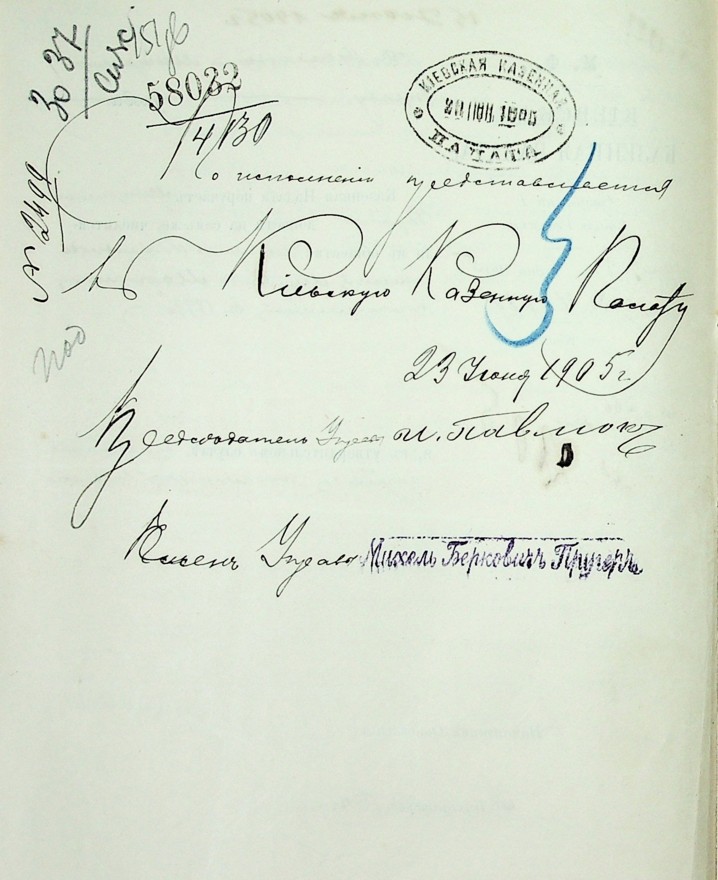 30 37
58032
14/130
КІЕВСКАЯ КАЗЕННАЯ ПАЛАТА
№ 2499
о исполнении представляется
въ Кіевскую Казенную Палату
23 Іюня 1905 г.
Председатель Управы И. Павлюкъ
Членъ Управы Михель Берковичъ Пругеръ